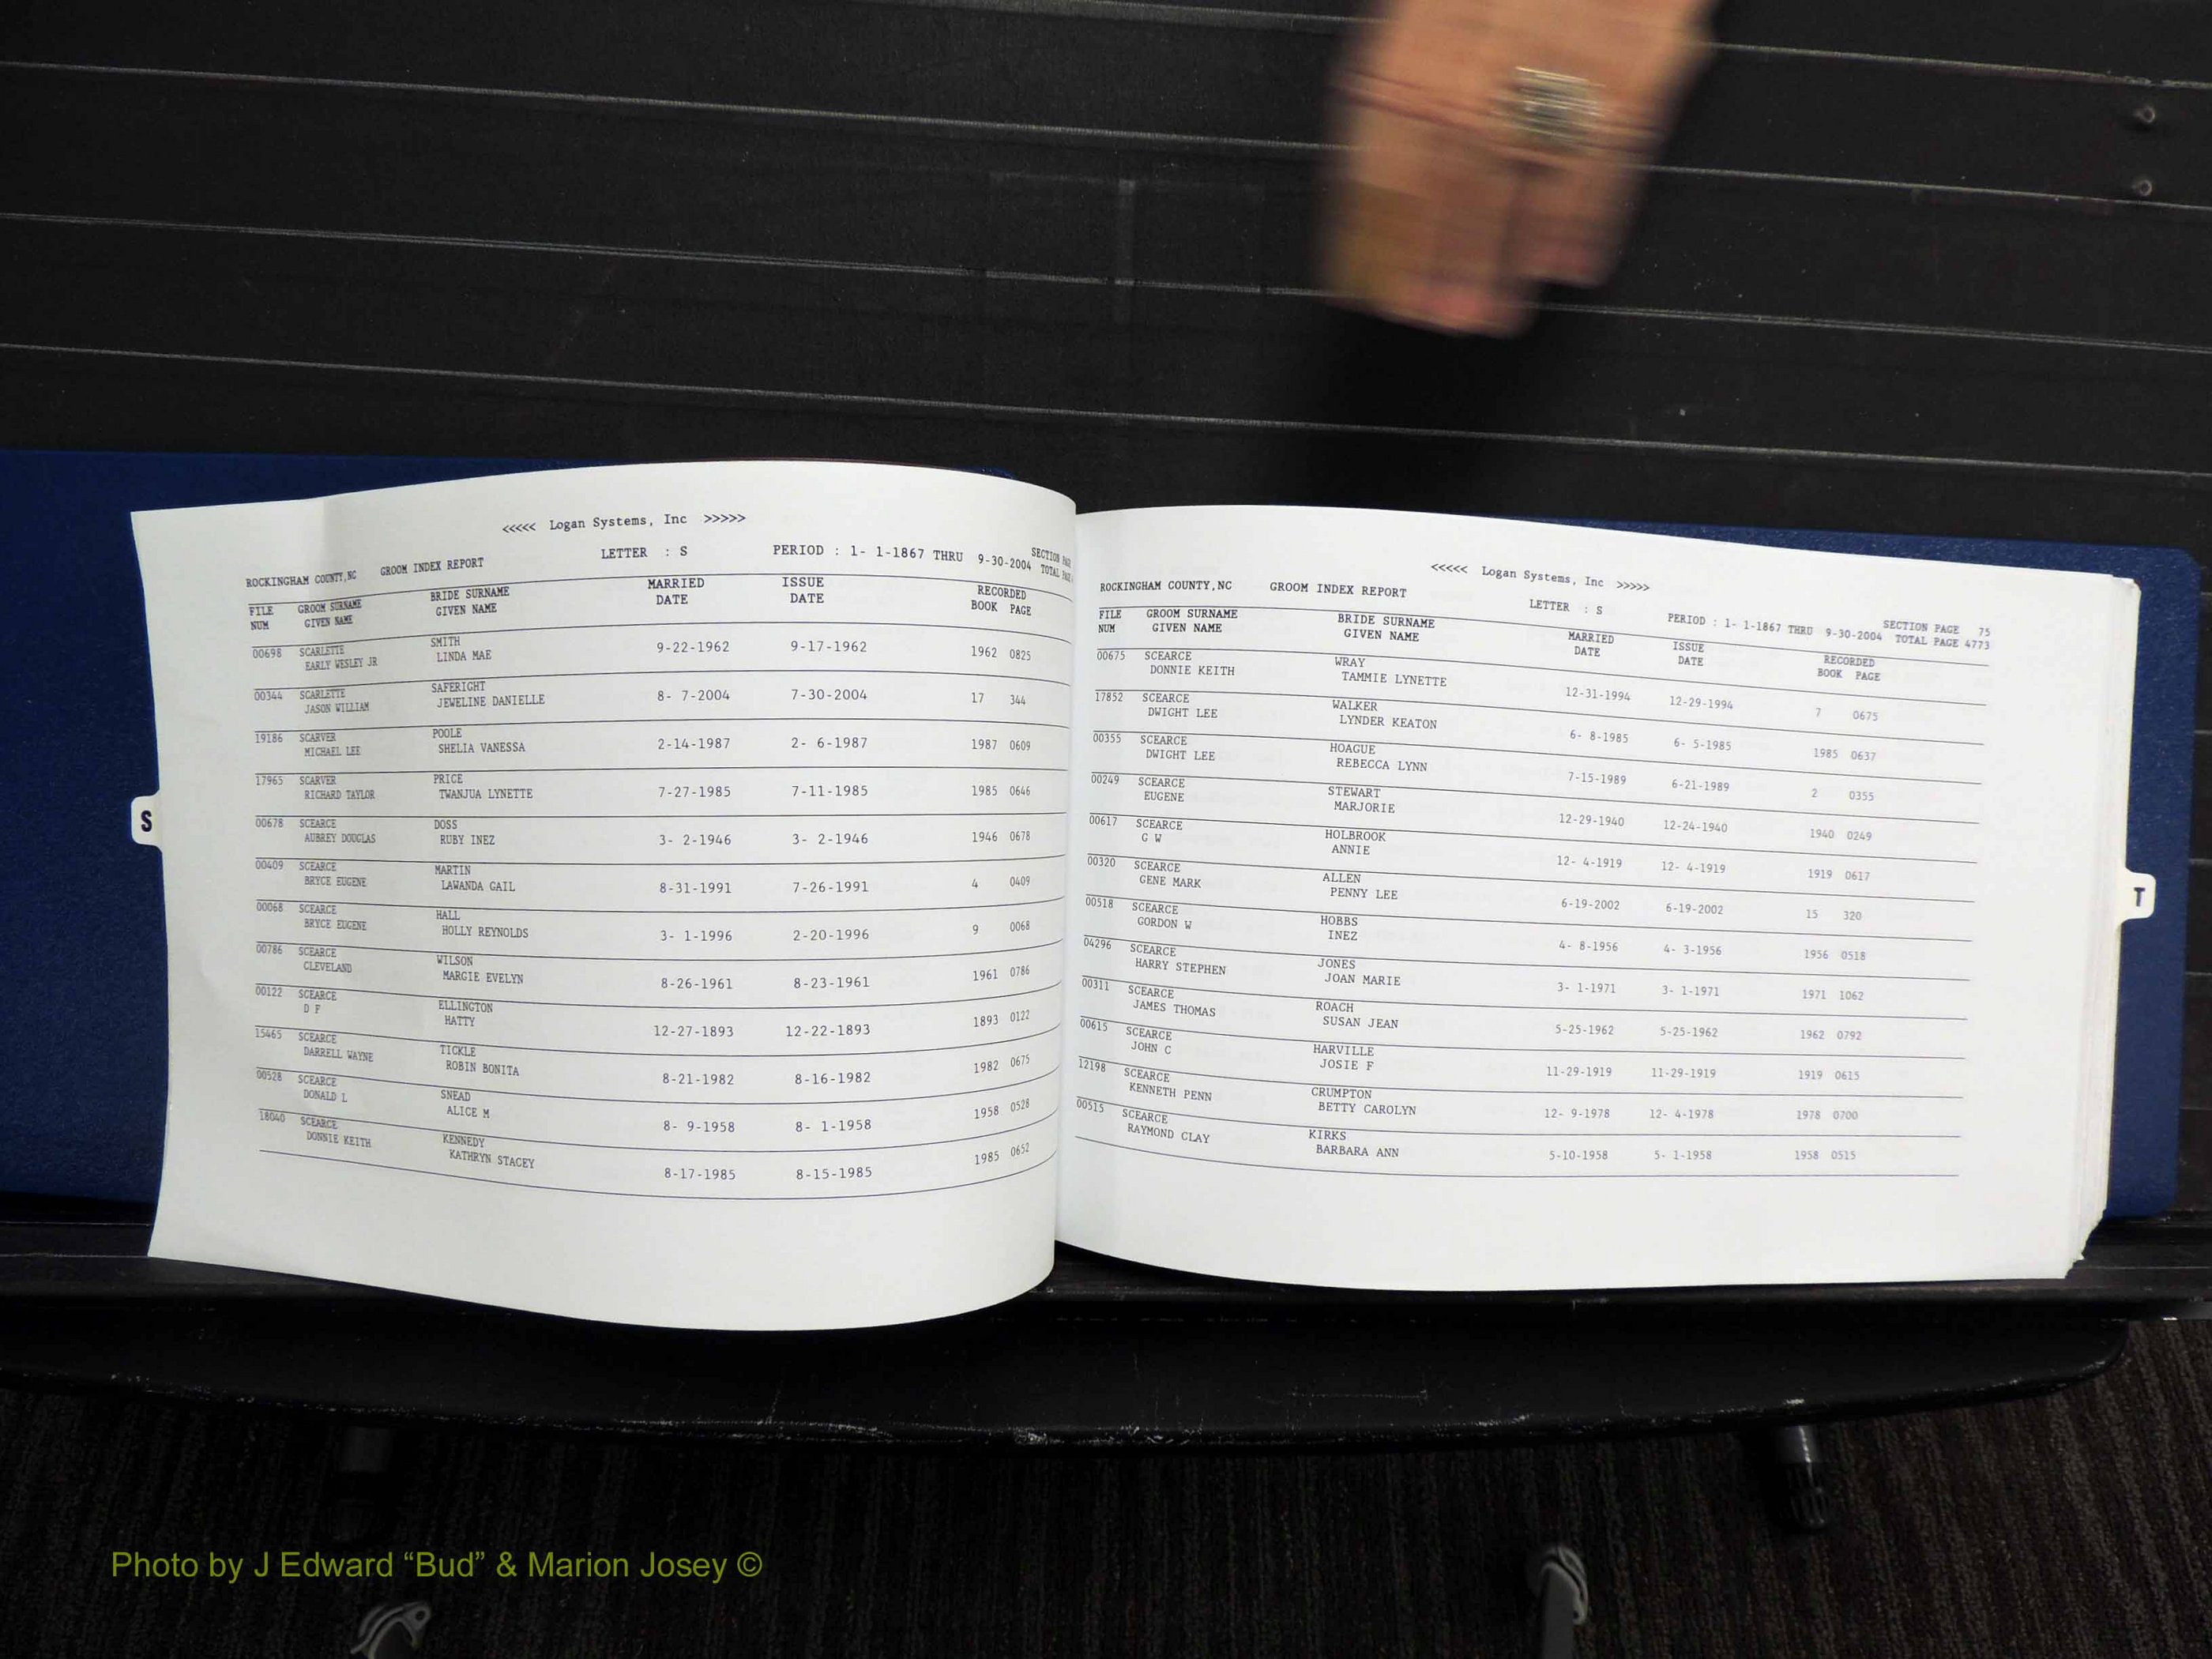 <<<<< Logan Systems, Inc >>>>>
ROCKINGHAM COUNTY,NC GROOM INDEX REPORT LETTER : S PERIOD : 1- 1-1867 THRU 9-30-2004 SECTION
TOTAL
FILE GROOM SURNAME BRIDE SURNAME MARRIED ISSUE RECORDED
NUM GIVEN NAME GIVEN NAME DATE DATE BOOK PAGE
00698 SCARLETTE SMITH 9-22-1962 9-17-1962 1962 0825
EARLY WESLEY JR LINDA MAE
00344 SCARLETTE SAFERIGHT 8- 7-2004 7-30-2004 17 344
JASON WILLIAM JEWELINE DANIELLE
19186 SCARVER POOLE 2-14-1987 2- 6-1987 1987 0609
MICHAEL LEE SHELIA VANESSA
17965 SCARVER PRICE 7-27-1985 7-11-1985 1985 0646
RICHARD TAYLOR TWANJUA LYNETTE
00678 SCEARCE DOSS 3- 2-1946 3- 2-1946 1946 0678
AUBREY DOUGLAS RUBY INEZ
00409 SCEARCE MARTIN 8-31-1991 7-26-1991 4 0409
BRYCE EUGENE LAWANDA GAIL
00068 SCEARCE HALL 3- 1-1996 2-20-1996 9 0068
BRYCE EUGENE HOLLY REYNOLDS
00786 SCEARCE WILSON 8-26-1961 8-23-1961 1961 0786
CLEVELAND MARGIE EVELYN
00122 SCEARCE ELLINGTON 12-27-1893 12-22-1893 1893 0122
D F HATTY
15465 SCEARCE TICKLE 8-21-1982 8-16-1982 1982 0675
DARRELL WAYNE ROBIN BONITA
00528 SCEARCE SNEAD 8- 9-1958 8- 1-1958 1958 0528
DONALD L ALICE M
18040 SCEARCE KENNEDY 8-17-1985 8-15-1985 1985 0652
DONNIE KEITH KATHRYN STACEY
S
<<<<< Logan Systems, Inc >>>>>
ROCKINGHAM COUNTY,NC GROOM INDEX REPORT LETTER : S PERIOD : 1- 1-1867 THRU 9-30-2004 SECTION PAGE 75
TOTAL PAGE 4773
FILE GROOM SURNAME BRIDE SURNAME MARRIED ISSUE RECORDED
NUM GIVEN NAME GIVEN NAME DATE DATE BOOK PAGE
00675 SCEARCE WRAY 12-31-1994 12-29-1994 7 0675
DONNIE KEITH TAMMIE LYNETTE
17852 SCEARCE WALKER 6- 8-1985 6- 5-1985 1985 0637
DWIGHT LEE LYNDER KEATON
00355 SCEARCE HOAGUE 7-15-1989 6-21-1989 2 0355
DWIGHT LEE REBECCA LYNN
00249 SCEARCE STEWART 12-29-1940 12-24-1940 1940 0249
EUGENE MARJORIE
00617 SCEARCE HOLBROOK 12- 4-1919 12- 4-1919 1919 0617
G W ANNIE
00320 SCEARCE ALLEN 6-19-2002 6-19-2002 15 320
GENE MARK PENNY LEE
00518 SCEARCE HOBBS 4- 8-1956 4- 3-1956 1956 0518
GORDON W INEZ
04296 SCEARCE JONES 3- 1-1971 3- 1-1971 1971 1062
HARRY STEPHEN JOAN MARIE
00311 SCEARCE ROACH 5-25-1962 5-25-1962 1962 0792
JAMES THOMAS SUSAN JEAN
00615 SCEARCE HARVILLE 11-29-1919 11-29-1919 1919 0615
JOHN C JOSIE F
12198 SCEARCE CRUMPTON 12- 9-1978 12- 4-1978 1978 0700
KENNETH PENN BETTY CAROLYN
00515 SCEARCE KIRKS 5-10-1958 5- 1-1958 1958 0515
RAYMOND CLAY BARBARA ANN
T
Photo by J Edward “Bud” & Marion Josey ©